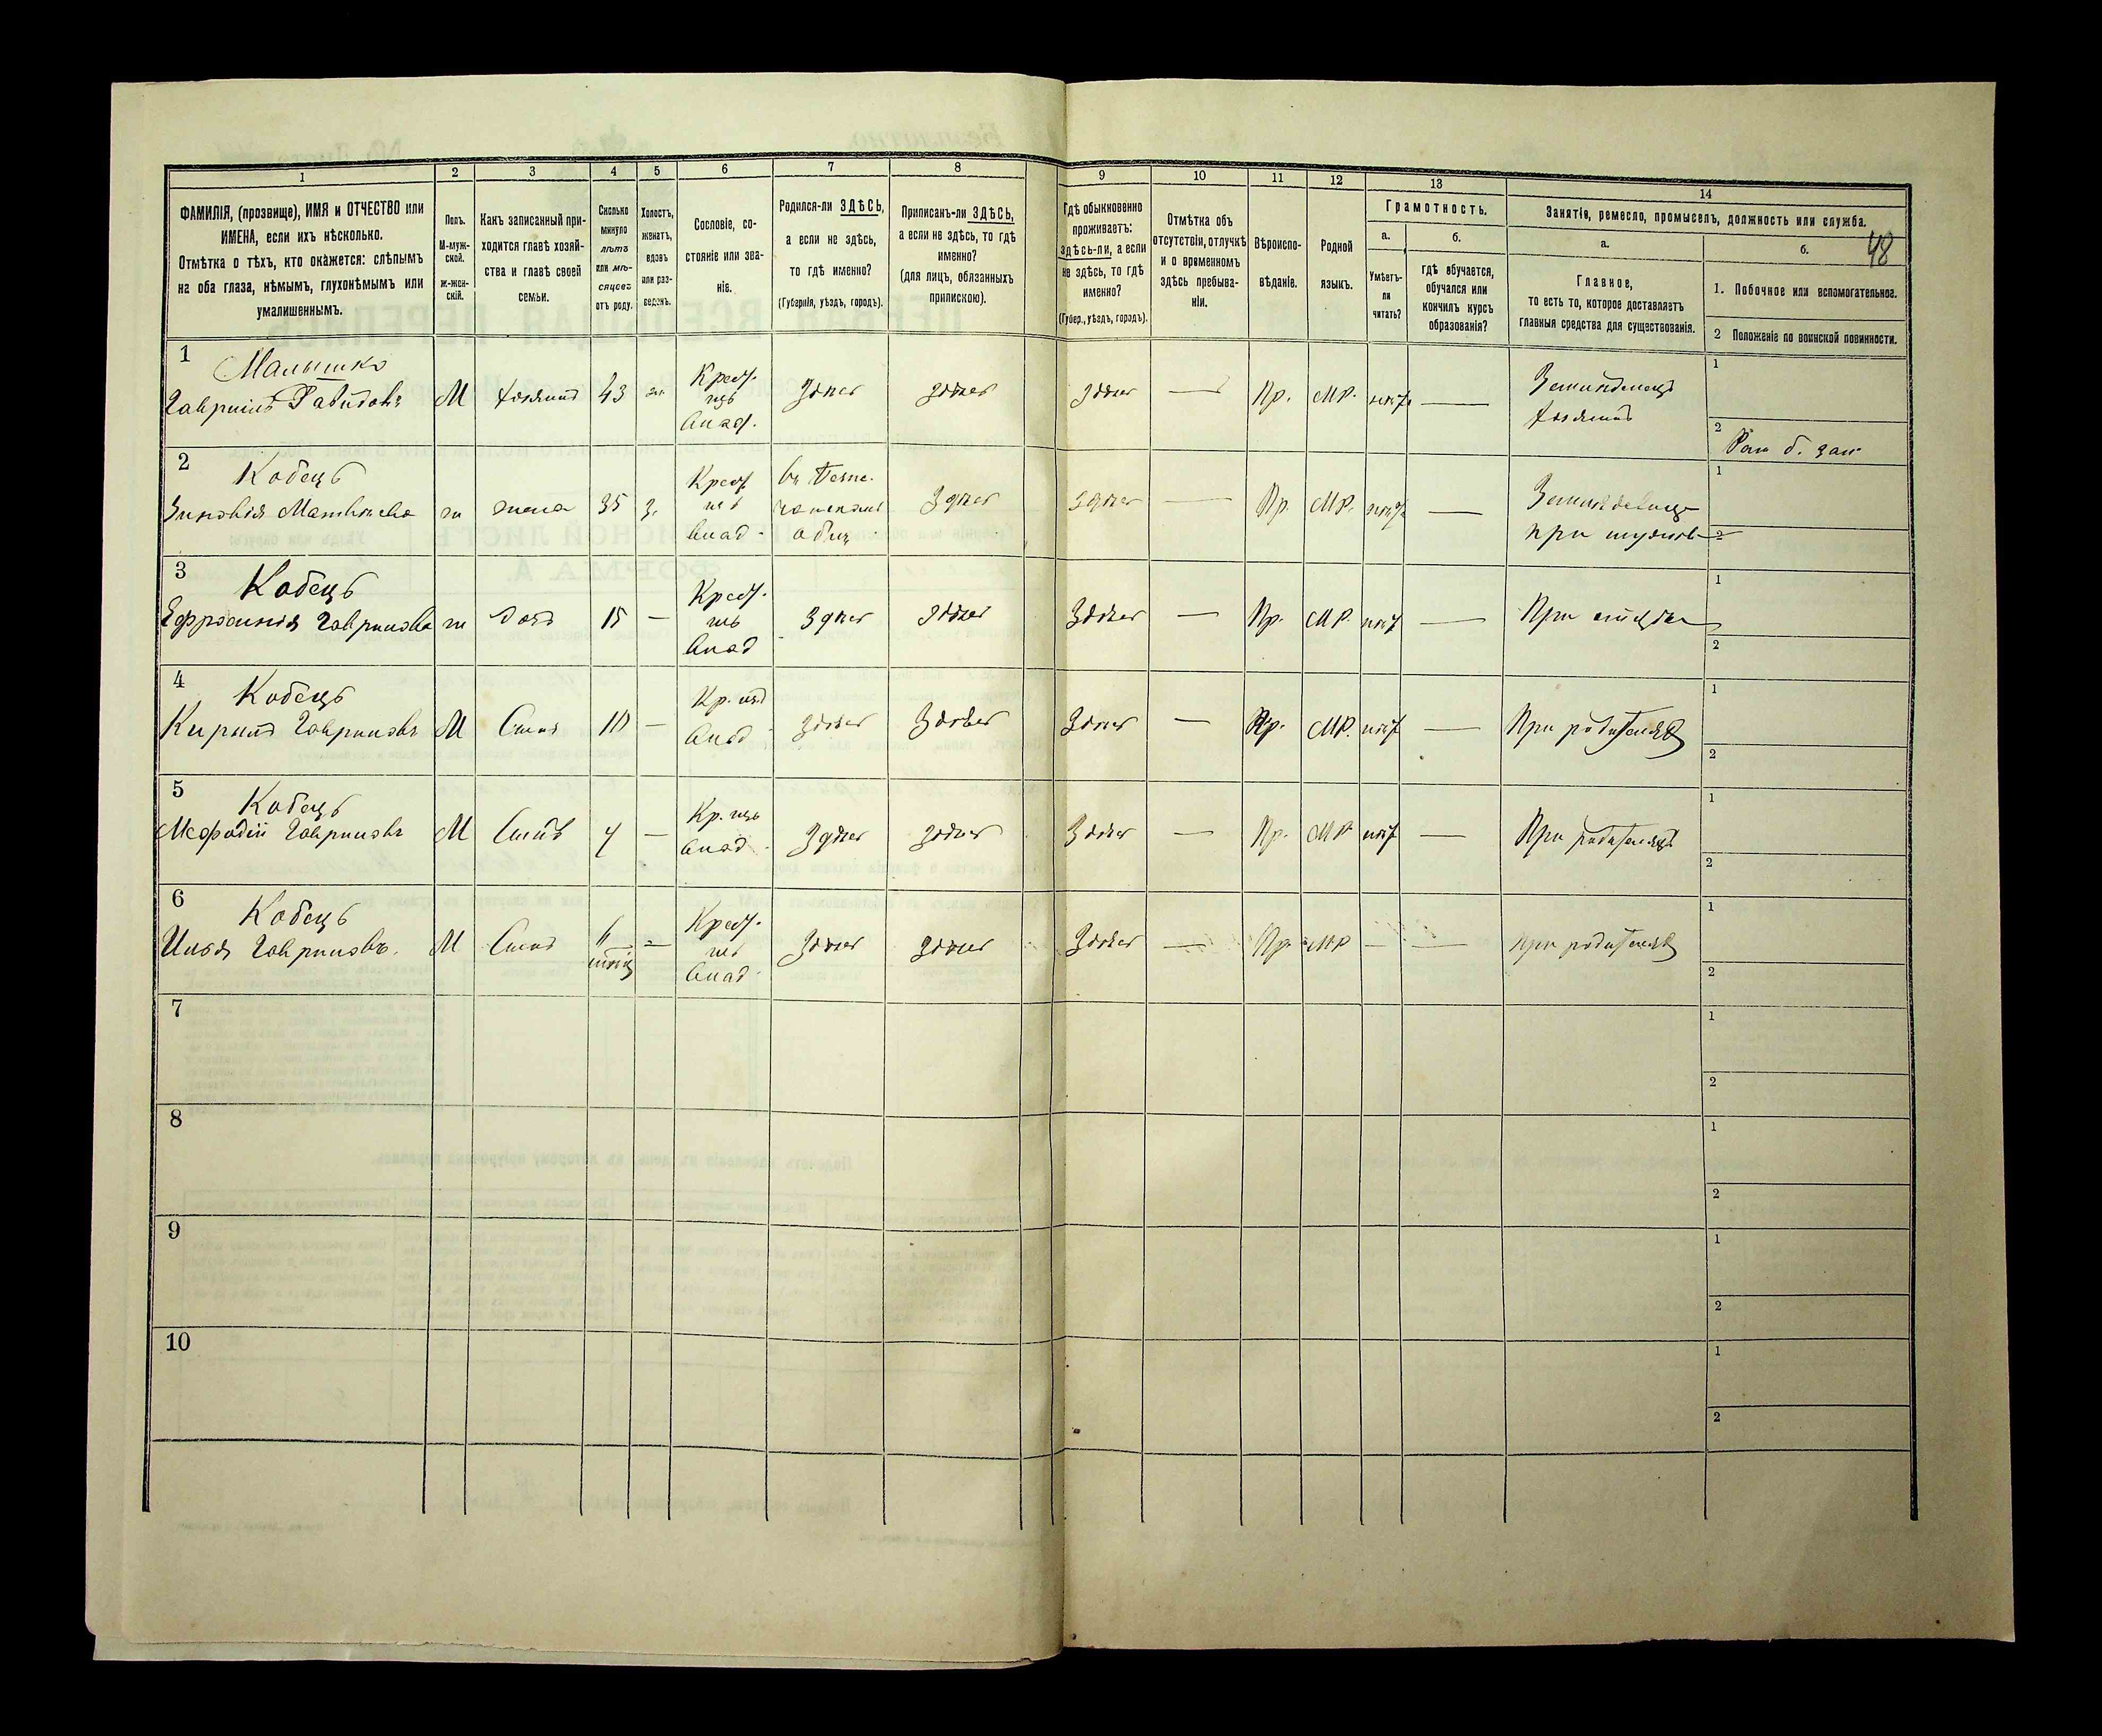 1
2
3
4
5
6
7
8
9
10
11
12
13
14
ФАМИЛІЯ, (прозвище), ИМЯ и ОТЧЕСТВО или
ИМЕНА, если ихъ нѣсколько.
Отмѣтка о тѣхъ, кто окажется: слѣпымъ
на оба глаза, нѣмымъ, глухонѣмымъ или
умалишеннымъ.
Полъ.
М-муж-
ской.
ж-жен-
скій.
Какъ записанный при-
ходится главѣ хозяй-
ства и главѣ своей
семьи.
Сколько
минуло
лѣтъ
или мѣ-
сяцевъ
отъ роду.
Холостъ,
женатъ,
вдовъ
или раз-
веденъ.
Сословіе, со-
стояніе или зва-
ніе.
Родился-ли ЗДѢСЬ,
а если не здѣсь,
то гдѣ именно?
(Губернія, уѣздъ, городъ).
Приписанъ-ли ЗДѢСЬ,
а если не здѣсь, то гдѣ
именно?
(для лицъ, обязанныхъ
припискою).
Гдѣ обыкновенно
проживаетъ:
здѣсь-ли, а если
не здѣсь, то гдѣ
именно?
(Губер., уѣздъ, городъ).
Отмѣтка объ
отсутствіи, отлучкѣ
и о временномъ
здѣсь пребыва-
ніи.
Вѣроиспо-
вѣданіе.
Родной
языкъ.
Грамотность.
а.
Умѣетъ-
ли
читать?
б.
гдѣ обучается,
обучался или
кончилъ курсъ
образованія?
Занятіе, ремесло, промыселъ, должность или служба.
а.
Главное,
то есть то, которое доставляетъ
главныя средства для существованія.
б.
48
1. Побочное или вспомогательное.
2 Положеніе по воинской повинности.
1 Малышко
Гавріилъ Давидовъ М хозяинъ 43 Крест. здѣсь здѣсь здѣсь — Пр. МР. нѣтъ —
хозяинъ
1
2
2 Кобецъ
Зиновія Матвѣева ж жена 35 Крест. здѣсь здѣсь — Пр. МР. нѣтъ —
при мужѣ
1
2
3 Кобецъ
Ефросинія Гаврилова ж дочь 15 — Крест. здѣсь здѣсь здѣсь — Пр. МР. нѣтъ — При отцѣ
1
2
4 Кобецъ
Кирилъ Гавриловъ М Сынъ 10 — Кр. здѣсь здѣсь здѣсь — Пр. МР. нѣтъ — При родителяхъ
1
2
5 Кобецъ
Мефодій Гавриловъ М Сынъ 4 — Кр. здѣсь здѣсь здѣсь — Пр. МР нѣтъ — При родителяхъ
1
2
6 Кобецъ
Илья Гавриловъ. М Сынъ — Крест. здѣсь здѣсь здѣсь — Пр. МР — — при родителяхъ
1
2
7
1
2
8
1
2
9
1
2
10
1
2